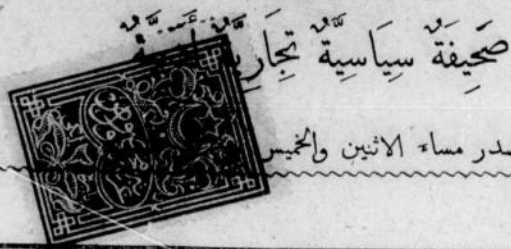 صَحِيفَةٌ سِيَاسِيَّةٌ تِجَارِيَّةٌ
صدر مساء الاثنين والخميس